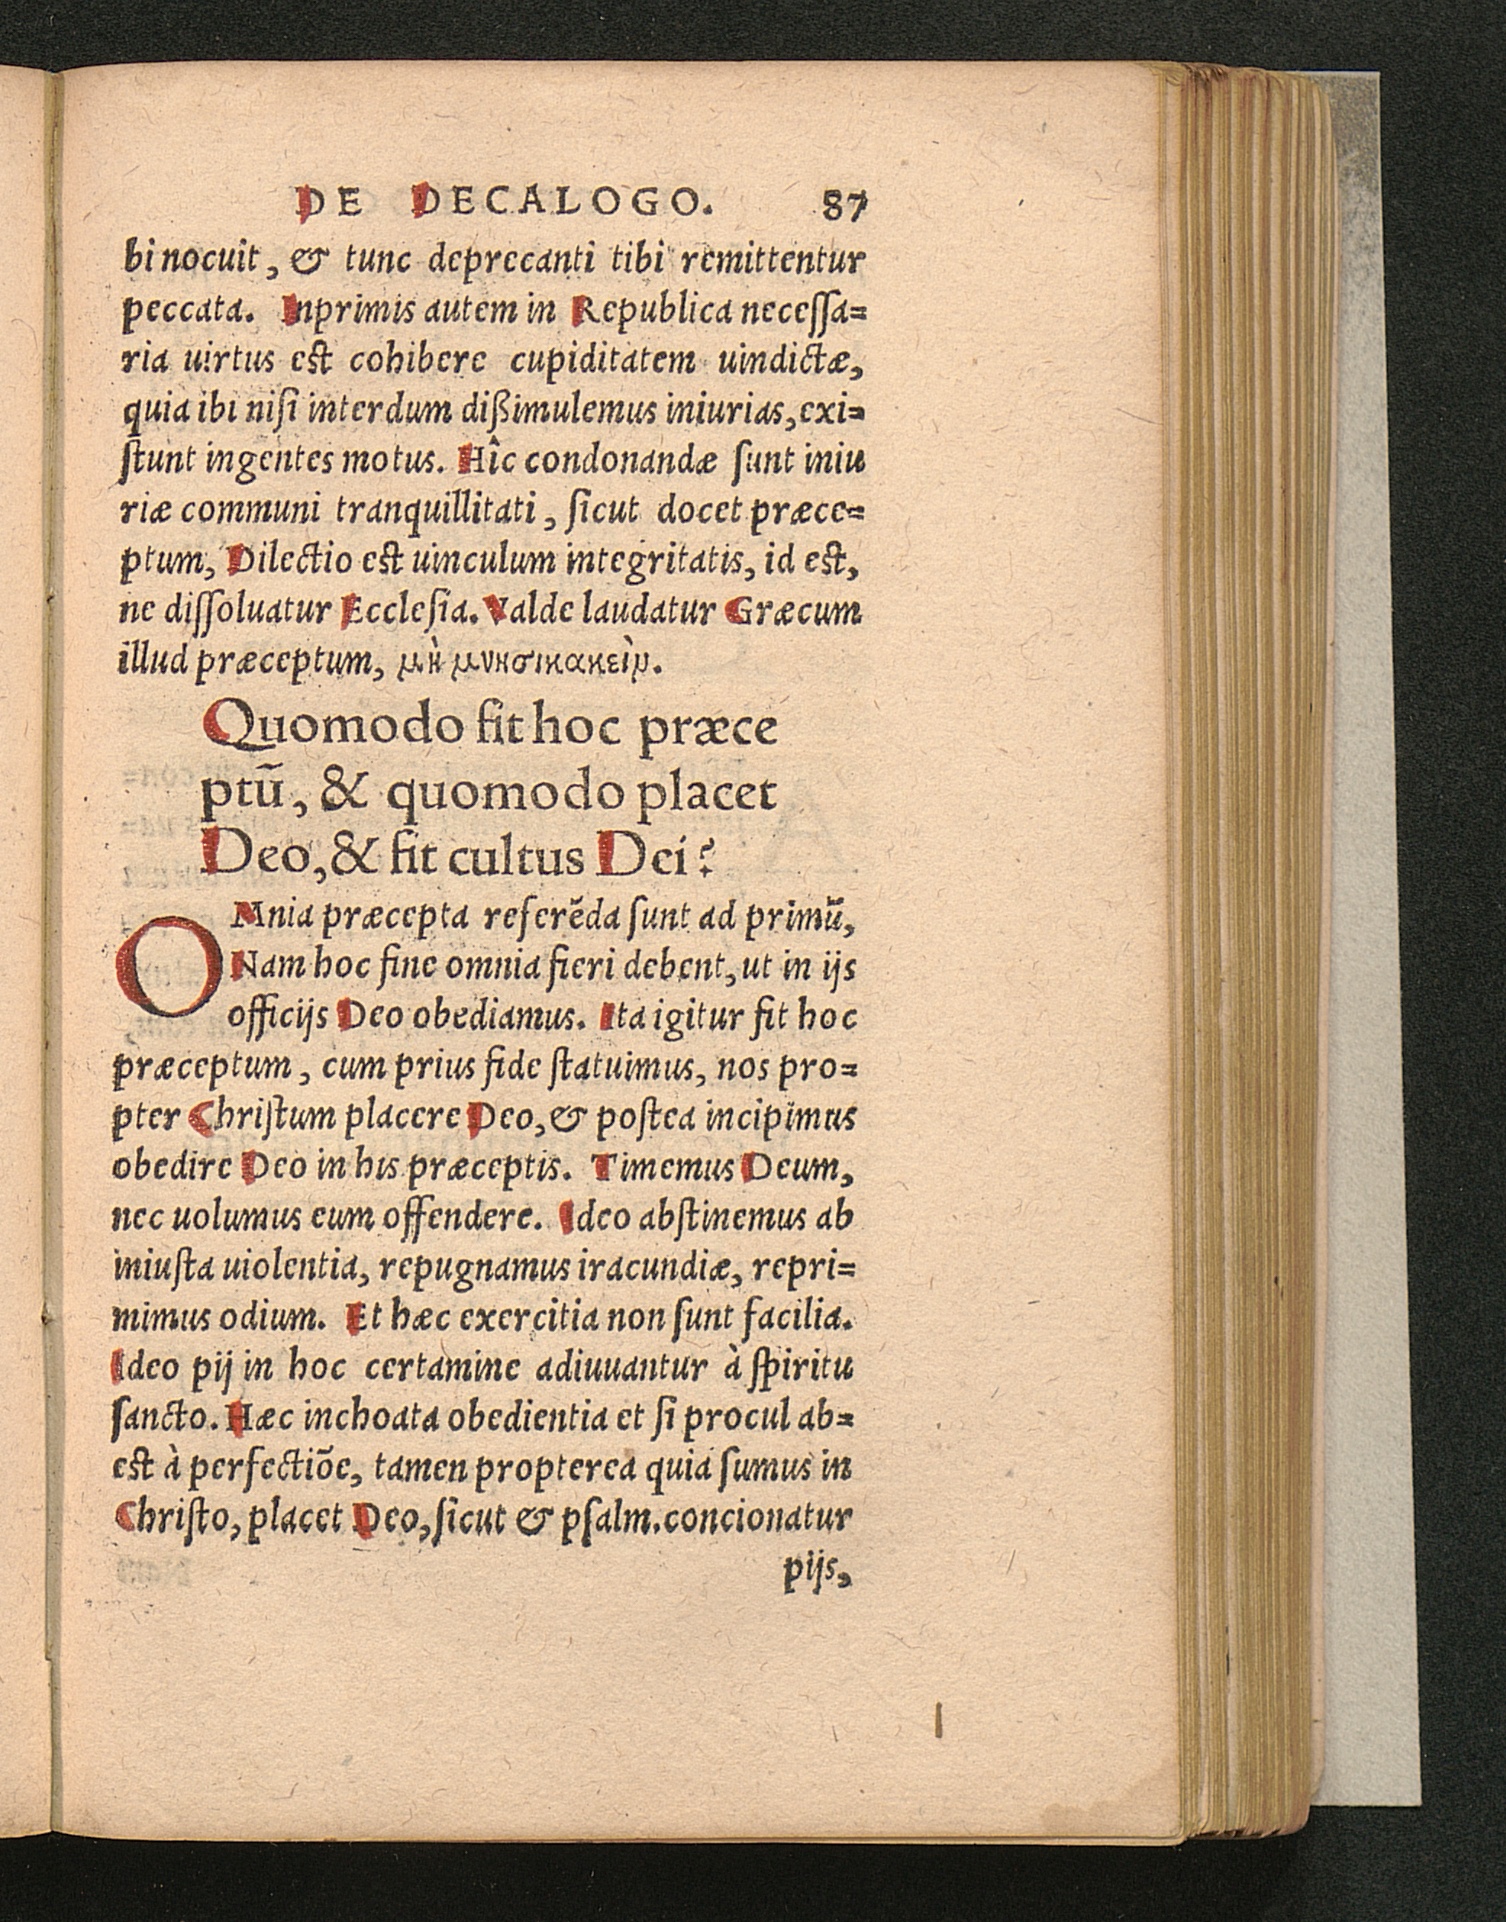 DE DECALOGO. 87
bi nocuit, & tunc deprecanti tibi remittentur
peccata. Inprimis autem in Republica neceſſa=
ria uirtus est cohibere cupiditatem uindictæ,
quia ibi niſi interdum dißimulemus iniurias, exi=
ſtunt ingentes motus. Hîc condonandæ ſunt iniu
riæ communi tranquillitati, ſicut docet præce=
ptum, Dilectio est uinculum integritatis, id est,
ne diſſoluatur Eccleſia. Valde laudatur Græcum
illud præceptum, μὴ μνησικακεῖν.
Quomodo fit hoc præce
ptũ, & quomodo placet
Deo, & fit cultus Dei?
OMnia præcepta referẽda ſunt ad primũ,
Nam hoc fine omnia fieri debent, ut in ijs
officijs Deo obediamus. Ita igitur fit hoc
præceptum, cum prius fide ſtatuimus, nos pro=
pter Chriſtum placere Deo, & poſtea incipimus
obedire Deo in his præceptis. Timemus Deum,
nec uolumus eum offendere. Ideo abſtinemus ab
iniuſta uiolentia, repugnamus iracundiæ, repri=
mimus odium. Et hæc exercitia non ſunt facilia.
Ideo pij in hoc certamine adiuuantur à ſpiritu
ſancto. Hæc inchoata obedientia et ſi procul ab=
est à perfectiõe, tamen propterea quia ſumus in
Chriſto, placet Deo, ſicut & pſalm. concionatur
pijs,